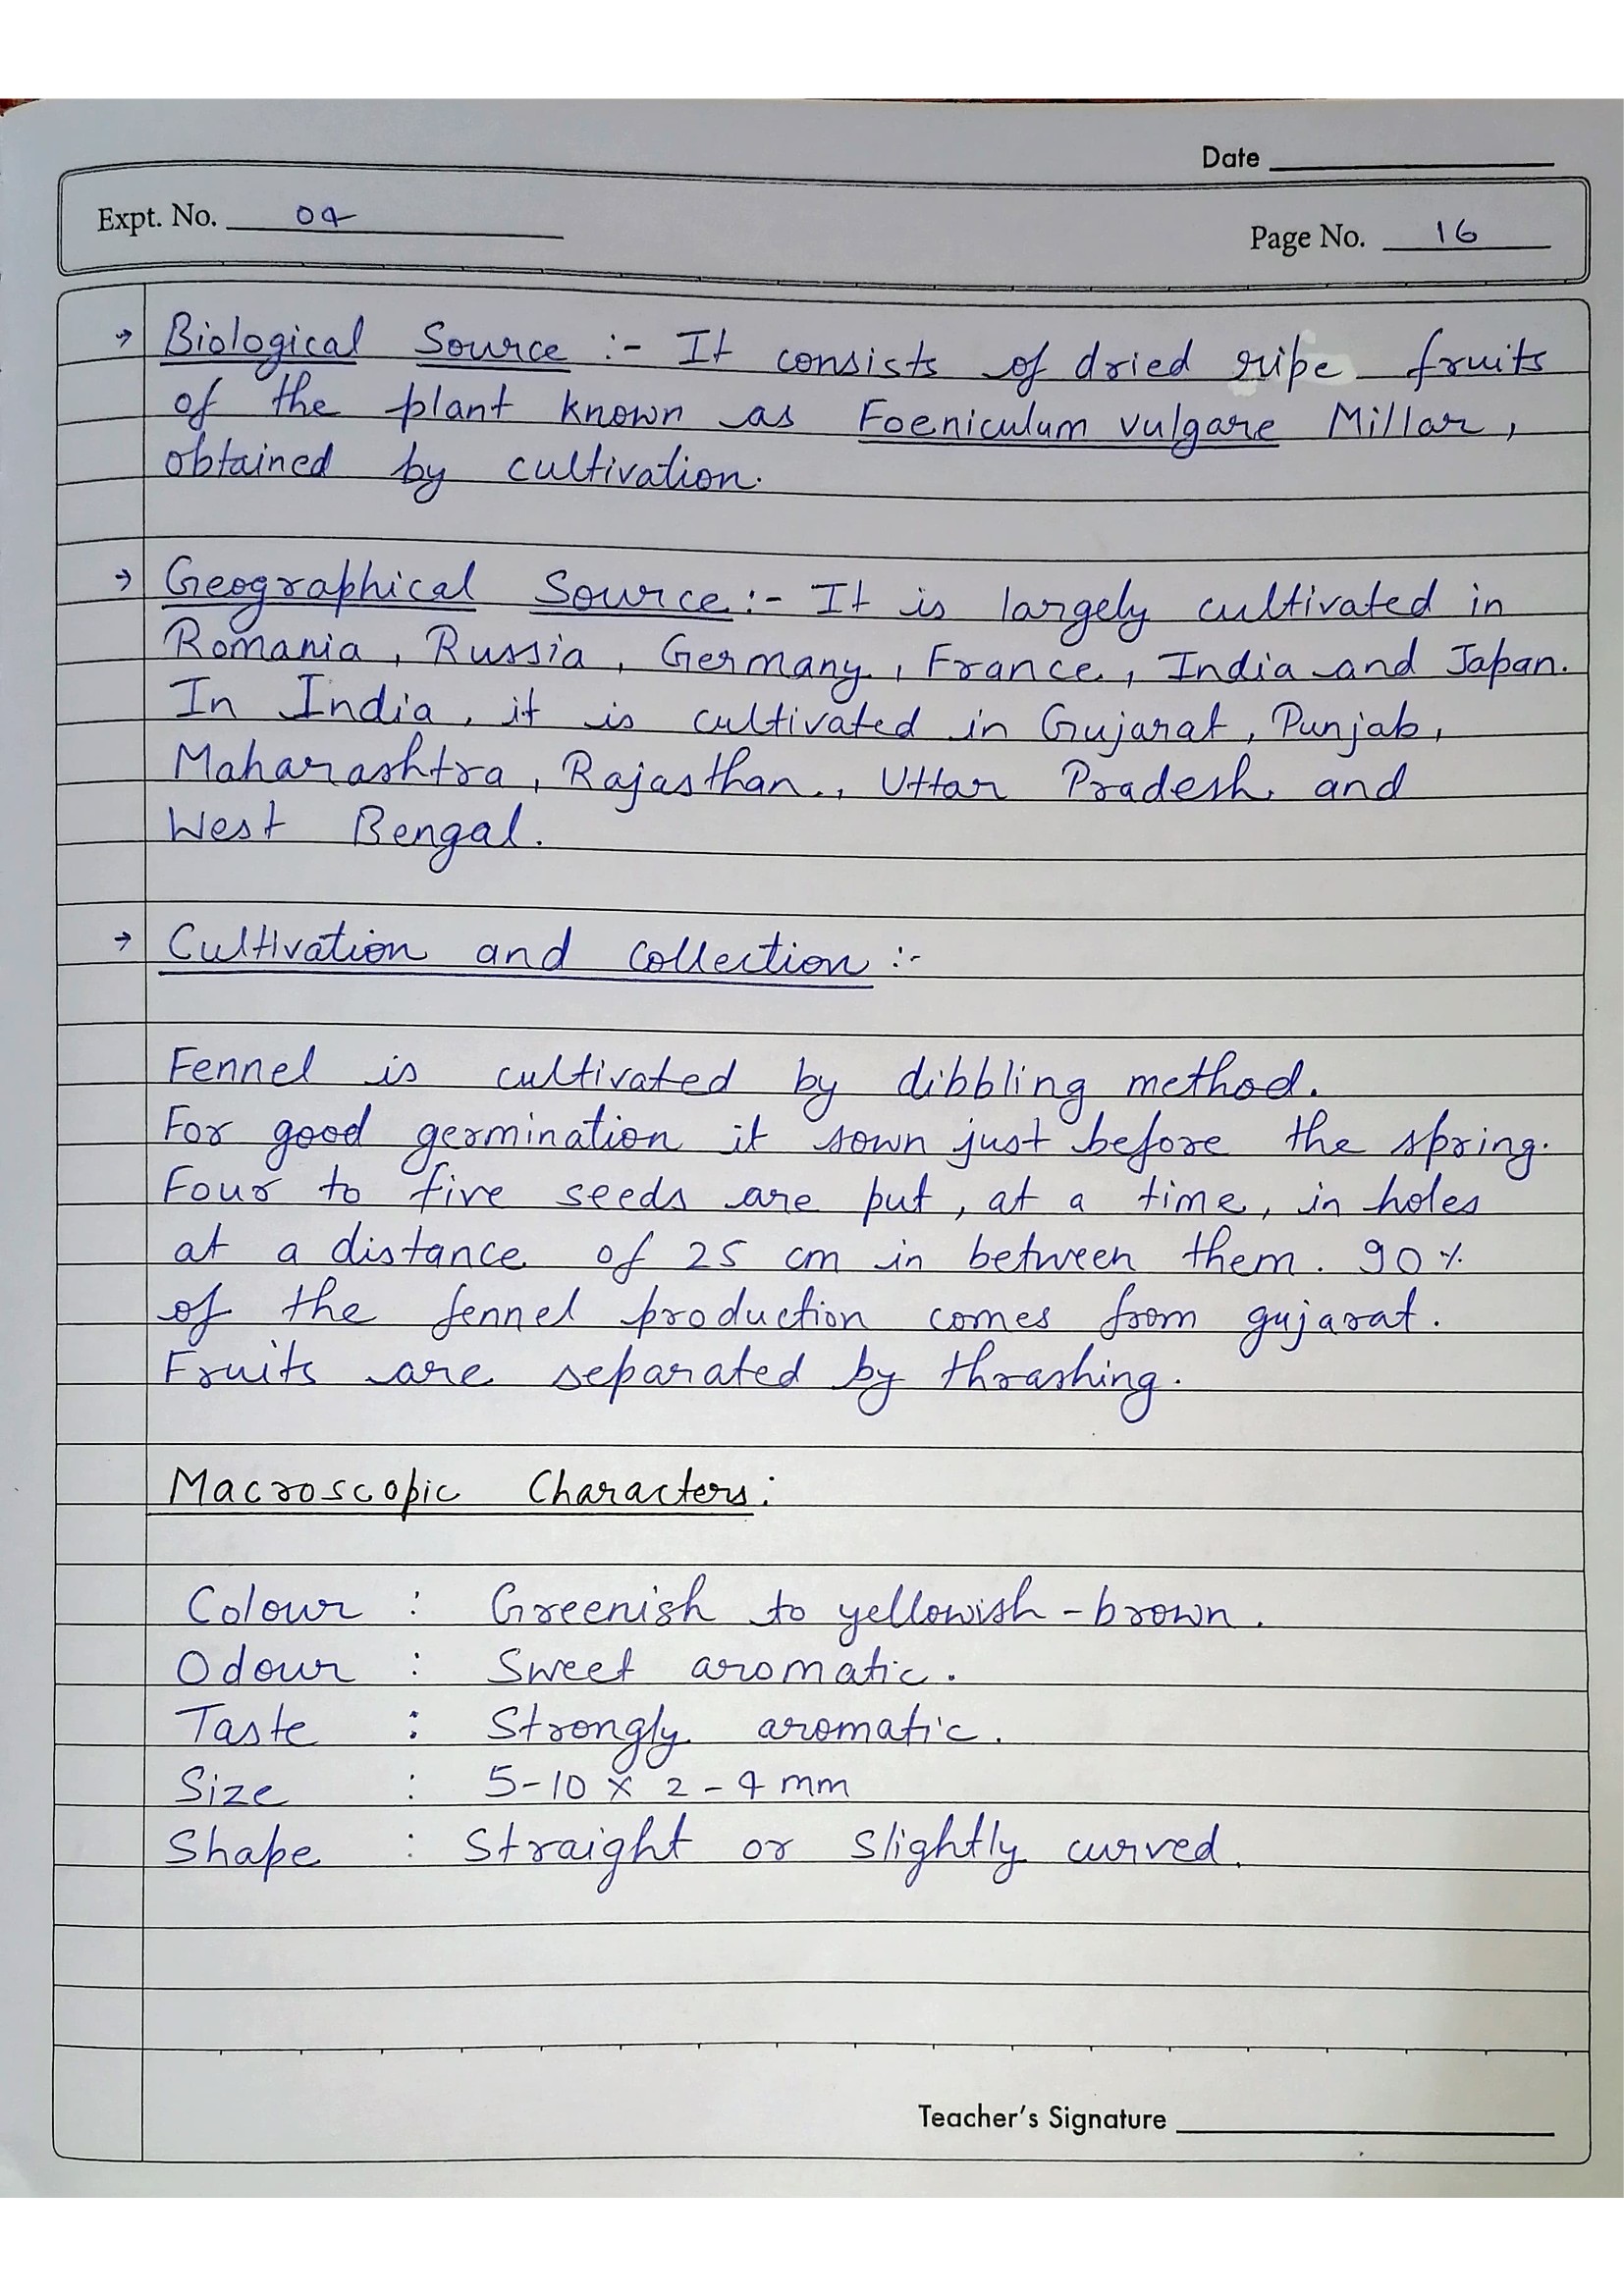 Date
Expt. No. 04
Page No. 16
→ Biological Source :- It consists of dried ripe fruits
of the plant known as Foeniculum vulgare Millar,
obtained by cultivation.
→ Geographical Source :- It is largely cultivated in
Romania, Russia, Germany, France, India and Japan.
In India, it is cultivated in Gujarat, Punjab,
Maharashtra, Rajasthan., Uttar Pradesh and
West Bengal.
→ Cultivation and Collection :-
Fennel is cultivated by dibbling method.
For good germination it sown just before the spring.
Four to five seeds are put, at a time, in holes
at a distance of 25 cm in between them. 90%
of the fennel production comes from gujarat.
Fruits are separated by thrashing.
Macroscopic Characters:
Colour : Greenish to yellowish-brown.
Odour : Sweet aromatic.
Taste : Strongly aromatic.
Size : 5-10 x 2-4 mm
Shape : Straight or slightly curved.
Teacher's Signature